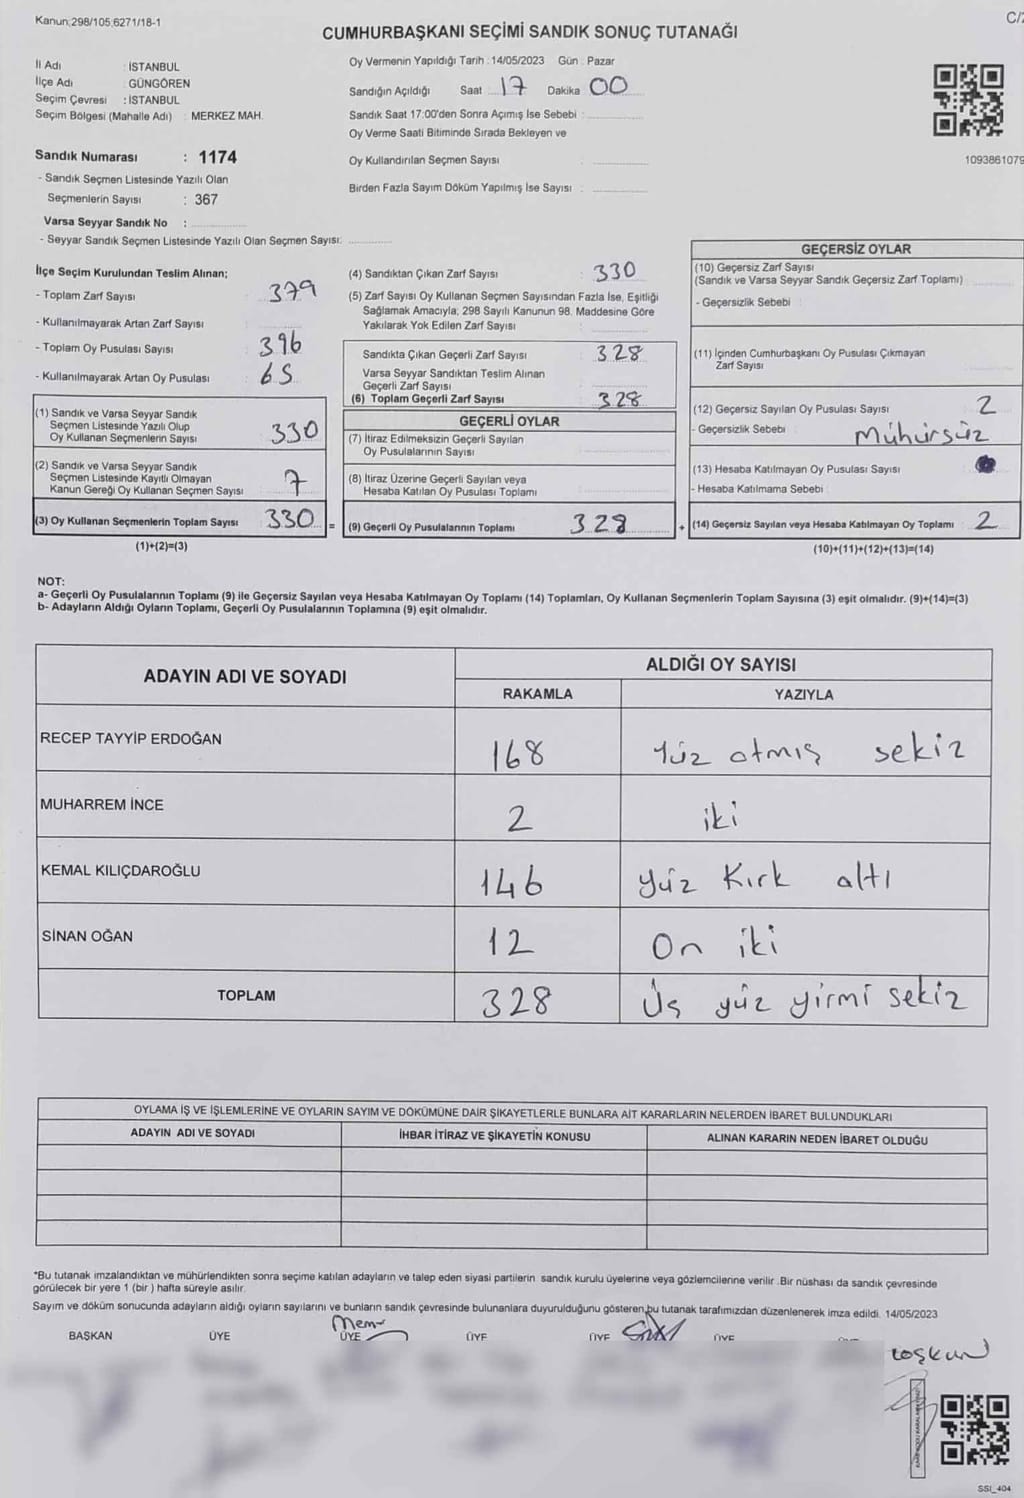 Kanun;298/105;6271/18-1
C/2
CUMHURBAŞKANI SEÇİMİ SANDIK SONUÇ TUTANAĞI
İl Adı : İSTANBUL
İlçe Adı : GÜNGÖREN
Seçim Çevresi : İSTANBUL
Seçim Bölgesi (Mahalle Adı) : MERKEZ MAH.
Sandık Numarası : 1174
- Sandık Seçmen Listesinde Yazılı Olan
Seçmenlerin Sayısı : 367
Varsa Seyyar Sandık No :
- Seyyar Sandık Seçmen Listesinde Yazılı Olan Seçmen Sayısı:
Oy Vermenin Yapıldığı Tarih : 14/05/2023 Gün : Pazar
Sandığın Açıldığı Saat 17 Dakika 00
Sandık Saat 17:00'den Sonra Açımış İse Sebebi :
Oy Verme Saati Bitiminde Sırada Bekleyen ve
Oy Kullandırılan Seçmen Sayısı :
Birden Fazla Sayım Döküm Yapılmış İse Sayısı :
1093861079
İlçe Seçim Kurulundan Teslim Alınan;
- Toplam Zarf Sayısı : 379
- Kullanılmayarak Artan Zarf Sayısı :
- Toplam Oy Pusulası Sayısı : 396
- Kullanılmayarak Artan Oy Pusulası : 65
(1) Sandık ve Varsa Seyyar Sandık
Seçmen Listesinde Yazılı Olup
Oy Kullanan Seçmenlerin Sayısı : 330
(2) Sandık ve Varsa Seyyar Sandık
Seçmen Listesinde Kayıtlı Olmayan
Kanun Gereği Oy Kullanan Seçmen Sayısı : 7
(3) Oy Kullanan Seçmenlerin Toplam Sayısı : 330 =
(1)+(2)=(3)
(4) Sandıktan Çıkan Zarf Sayısı : 330
(5) Zarf Sayısı Oy Kullanan Seçmen Sayısından Fazla İse, Eşitliği
Sağlamak Amacıyla; 298 Sayılı Kanunun 98. Maddesine Göre
Yakılarak Yok Edilen Zarf Sayısı :
Sandıkta Çıkan Geçerli Zarf Sayısı : 328
Varsa Seyyar Sandıktan Teslim Alınan
Geçerli Zarf Sayısı :
(6) Toplam Geçerli Zarf Sayısı : 328
GEÇERLİ OYLAR
(7) İtiraz Edilmeksizin Geçerli Sayılan
Oy Pusulalarının Sayısı :
(8) İtiraz Üzerine Geçerli Sayılan veya
Hesaba Katılan Oy Pusulası Toplamı :
(9) Geçerli Oy Pusulalarının Toplamı : 328 +
GEÇERSİZ OYLAR
(10) Geçersiz Zarf Sayısı
(Sandık ve Varsa Seyyar Sandık Geçersiz Zarf Toplamı) :
- Geçersizlik Sebebi :
(11) İçinden Cumhurbaşkanı Oy Pusulası Çıkmayan
Zarf Sayısı :
(12) Geçersiz Sayılan Oy Pusulası Sayısı : 2
- Geçersizlik Sebebi : Mühürsüz
(13) Hesaba Katılmayan Oy Pusulası Sayısı :
- Hesaba Katılmama Sebebi :
(14) Geçersiz Sayılan veya Hesaba Katılmayan Oy Toplamı : 2
(10)+(11)+(12)+(13)=(14)
NOT:
a- Geçerli Oy Pusulalarının Toplamı (9) ile Geçersiz Sayılan veya Hesaba Katılmayan Oy Toplamı (14) Toplamları, Oy Kullanan Seçmenlerin Toplam Sayısına (3) eşit olmalıdır. (9)+(14)=(3)
b- Adayların Aldığı Oyların Toplamı, Geçerli Oy Pusulalarının Toplamına (9) eşit olmalıdır.
ADAYIN ADI VE SOYADI
ALDIĞI OY SAYISI
RAKAMLA YAZIYLA
RECEP TAYYİP ERDOĞAN 168 Yüz atmış sekiz
MUHARREM İNCE 2 iki
KEMAL KILIÇDAROĞLU 146 yüz Kırk altı
SİNAN OĞAN 12 On iki
TOPLAM 328 Üç yüz yirmi sekiz
OYLAMA İŞ VE İŞLEMLERİNE VE OYLARIN SAYIM VE DÖKÜMÜNE DAİR ŞİKAYETLERLE BUNLARA AİT KARARLARIN NELERDEN İBARET BULUNDUKLARI
ADAYIN ADI VE SOYADI İHBAR İTİRAZ VE ŞİKAYETİN KONUSU ALINAN KARARIN NEDEN İBARET OLDUĞU
*Bu tutanak imzalandıktan ve mühürlendikten sonra seçime katılan adayların ve talep eden siyasi partilerin sandık kurulu üyelerine veya gözlemcilerine verilir .Bir nüshası da sandık çevresinde
görülecek bir yere 1 (bir ) hafta süreyle asılır.
Sayım ve döküm sonucunda adayların aldığı oyların sayılarını ve bunların sandık çevresinde bulunanlara duyurulduğunu gösteren bu tutanak tarafımızdan düzenlenerek imza edildi. 14/05/2023
BAŞKAN ÜYE ÜYE ÜYE ÜYE ÜYE
SSI_404